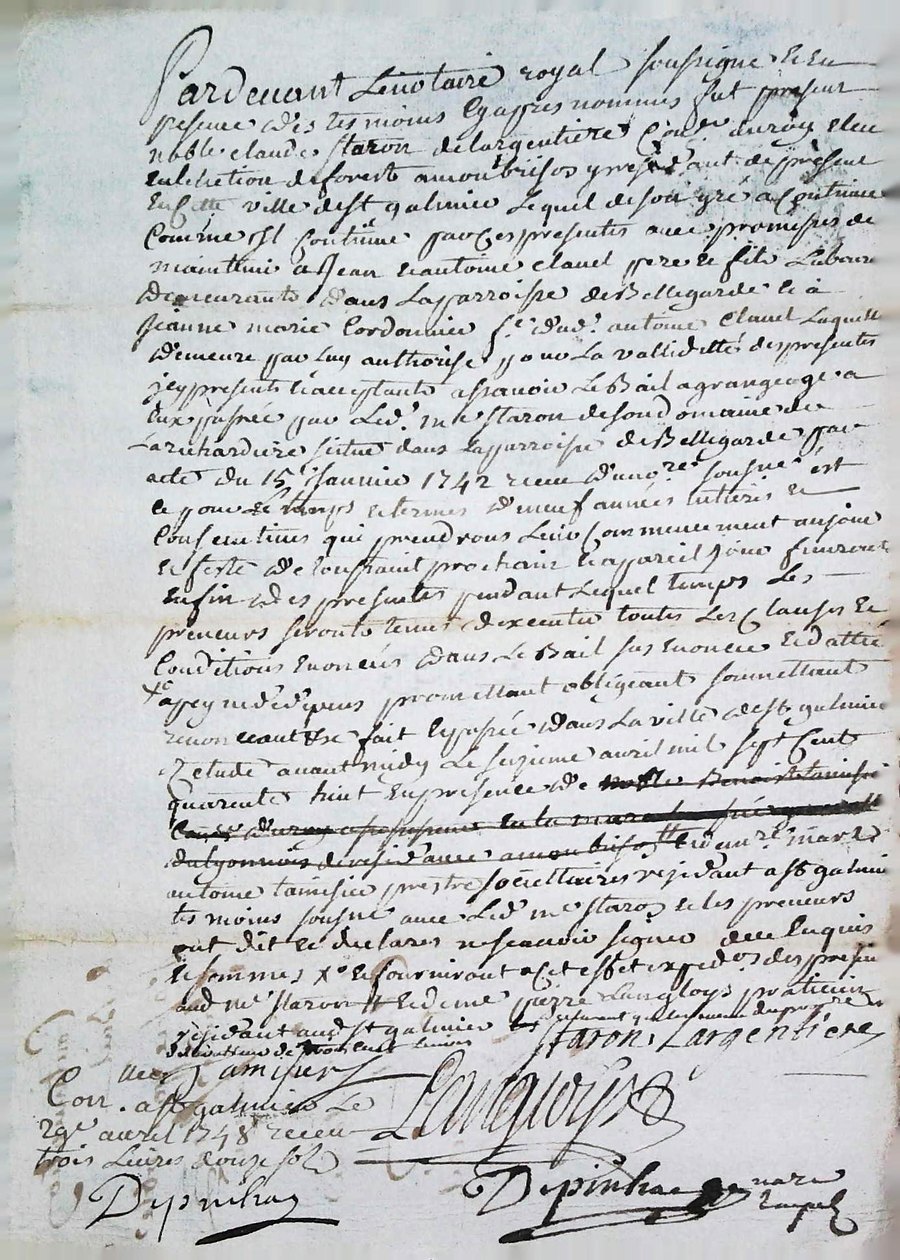 Pardevant Lenotaire royal soussigné et en
presence des tesmoins cyapres nommes fut present
noble claude staron delargentiere Con.er duroy eleu
enlelection deforests amontbrison y residant depresent
en cette ville de st galmier lequel deson gré a Continue
Comme il Continue par ces presentes avec promesses de
maintenir a Jean et antoine clauel pere et fils Labour.
demeurants dans Laparroisse de Bellegarde et à
jeanne marie Cordonnier f.e dud. antoine Clauel Laquelle
demeure par Luy authorisé pour La validitté des presentes
icy presents et acceptants assavoir Le Bail a grangeage a
Eux passée par Led. m.e staron desond omaine de
La richardiere situé dans Laparroisse de Bellegarde par
acte du 15.e Janvier 1742 receu dunore sousne. est
ce pour Le temps et termes de neuf années entieres et
Consecutives qui prendrons Leur Commencement aujour
et feste de toussaint prochain et apareil jour finiront
Enfin des presentes pendant Lequel temps Les
preneurs seronts tenus dexecuter toutes Les Clauses et
Conditions Enoncées dans Le Bail sus enonce et datté
apeyne dedepens promettant obligeant soummettant
renonceant &c fait et passée dans La ville de st galmier
Etude avant midy Le seizieme avril mil sept Cents
quarente huit En presence de
du lyonnois de residance a montbrison et de mre. marc
antoine tamisier prestre societtaire residant a st galmier
tesmoins sousne avec Led. m.e staron et les preneurs
ont dit et declares nescavoir signer dece Enquis
et sommes Xe et fourniront a Cet effet exped.on des presentes
aud m.e staron et de me pierre Langloys praticien
residant aud st galmier
staron Largentiere
Tamisier
Con. a st galmier Le
29e avril 1748 receu Langloys
trois Livres douze sols
Depinhac Depinhac